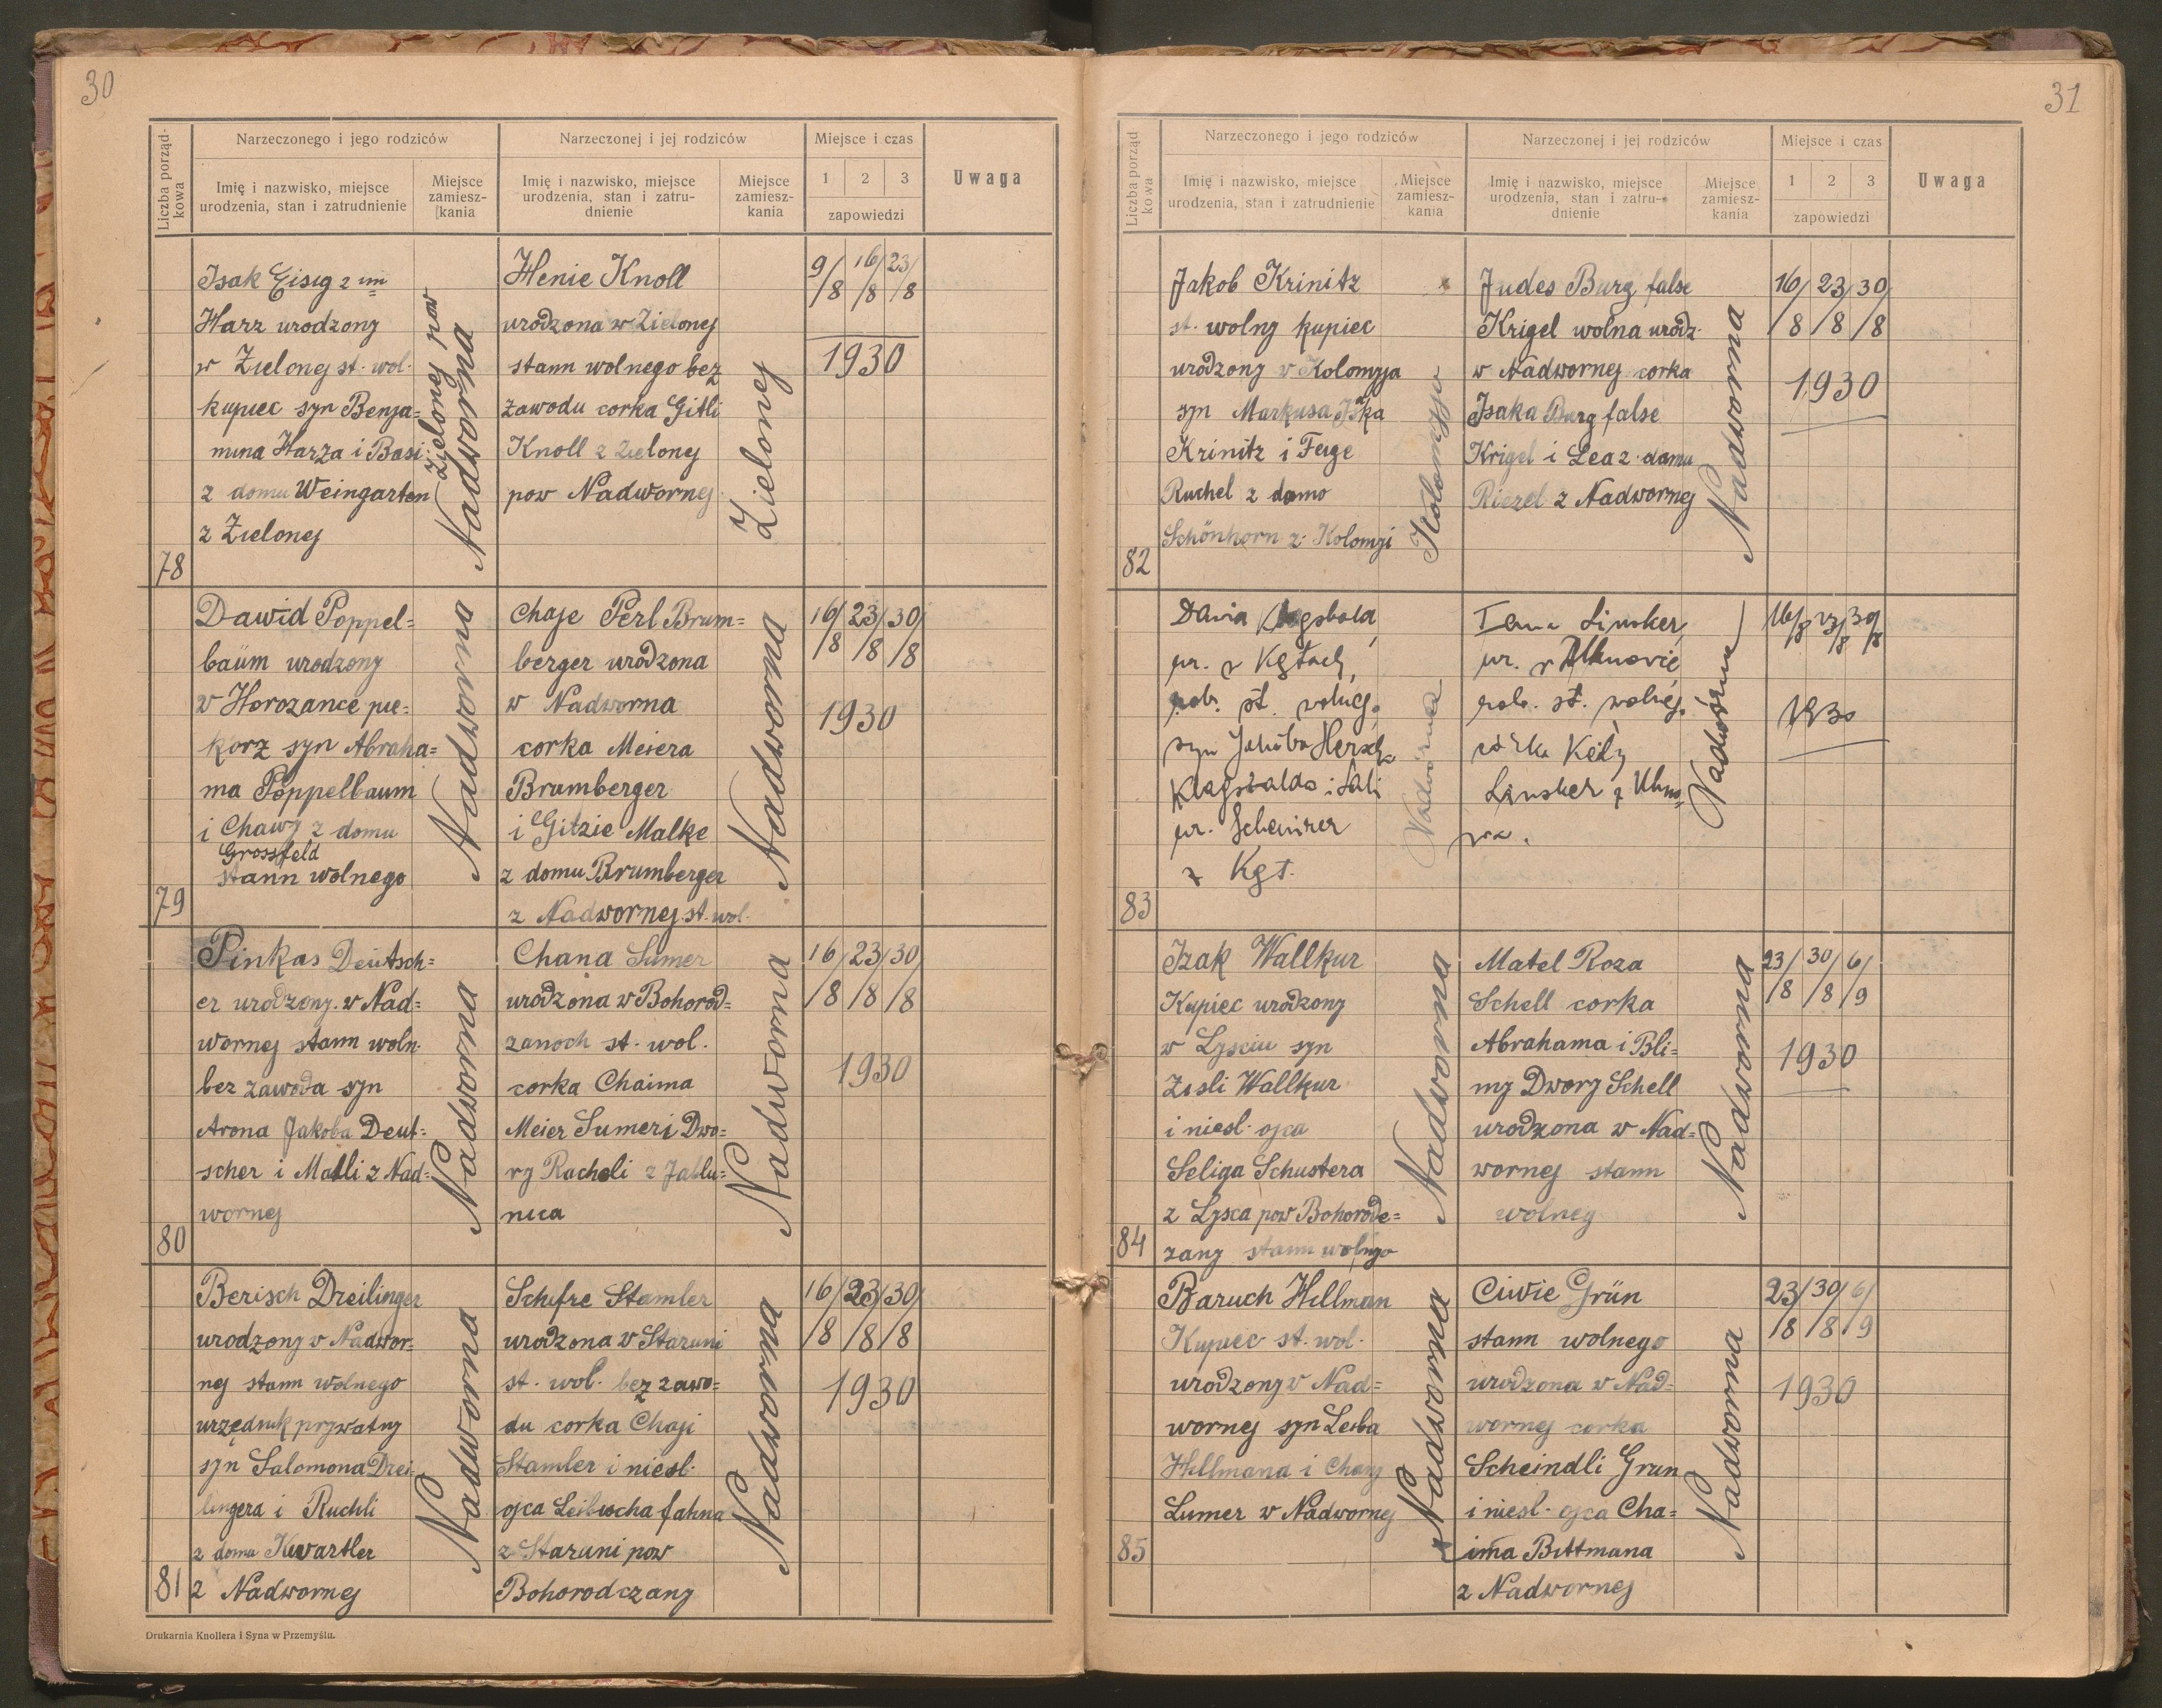 30
Liczba porząd-
kowa
Narzeczonego i jego rodziców
Narzeczonej i jej rodziców
Miejsce i czas
Imię i nazwisko, miejsce
urodzenia, stan i zatrudnienie
Miejsce
zamiesz-
kania
Imię i nazwisko, miejsce
urodzenia, stan i zatru-
dnienie
Miejsce
zamiesz-
kania
1 2 3
zapowiedzi
Uwaga
78
Isak Eisig 2 im
Harz urodzony
w Zielonej st. wol.
kupiec syn Benja=
mina Harza i Basi
z domu Weingarten
z Zielonej
Zielonej pow
Nadworna
Henie Knoll
urodzona w Zielonej
stann wolnego bez
zawodu corka Gitli
Knoll z Zielonej
pow Nadwornej
Zielonej
9/8 16/8 23/8
1930
79
Dawid Poppel=
baüm urodzony
w Horozance pie=
karz syn Abraha=
ma Poppelbaum
i Chawy z domu
Grossfeld
stann wolnego
Nadworna
Chaje Perl Brum=
berger urodzona
w Nadworna
corka Meiera
Brumberger
i Gitzie Malke
z domu Brumberger
z Nadwornej st. wol.
Nadworna
16/8 23/8 30/8
1930
80
Pinkas Deutsch=
er urodzony w Nad=
wornej stann woln.
bez zawoda syn
Arona Jakoba Deut=
scher i Matli z Nad=
wornej
Nadworna
Chana Sumer
urodzona w Bohorod=
zanoch st. wol.
corka Chaima
Meier Sumer i Dwo=
ry Racheli z Jablu=
nica
Nadworna
16/8 23/8 30/8
1930
81
Berisch Dreilinger
urodzony w Nadwor=
nej stann wolnego
urzędnik prywatny
syn Salomona Drei=
lingera i Ruchli
z domu Kwartler
z Nadwornej
Nadworna
Schifre Stamler
urodzona w Staruni
st. wol. bez zawo=
du corka Chaji
Stamler i niesl.
ojca Leibischa fahna
z Staruni pow
Bohorodczany
Nadworna
16/8 23/8 30/8
1930
Drukarnia Knollera i Syna w Przemyślu.
31
Liczba porząd
kowa
Narzeczonego i jego rodziców
Narzeczonej i jej rodziców
Miejsce i czas
Imię i nazwisko, miejsce
urodzenia, stan i zatrudnienie
Miejsce
zamiesz-
kania
Imię i nazwisko, miejsce
urodzenia, stan i zatru-
dnienie
Miejsce
zamiesz-
kania
1 2 3
zapowiedzi
Uwaga
82
Jakob Krinitz
st. wolny kupiec
urodzony w Kolomyja
syn Markusa
Krinitz i Feige
Ruchel z domo
Schönhorn z Kolomyi
Kolomyja
Judes Burg false
Krigel wolna urodz.
w Nadwornej corka
Isaka Burg false
Krigel i Lea z domu
Riezel z Nadwornej
Nadworna
16/8 23/8 30/8
1930
83
ur. w
rob. st. wolneg.
syn Jakóba Hersch
i Sali
ur. Scheinrer
z Kgt.
Nadwórna
Linsker
ur. w
rob. st. wolnej.
córka Keily
Linsker z
Nadwórna
16/8 23/8 30/8
1930
84
Izak Wallkur
Kupiec urodzony
w Lysciu syn
Zisli Wallkur
i niesl. ojca
Seliga Schustera
z Lysca pow Bohorode=
zany stann wolnego
Nadworna
Matel Roza
Schell corka
Abrahama i Bli=
my Dwory Schell
urodzona w Nad=
wornej stann
wolney
Nadworna
23/8 30/8 6/9
1930
85
Baruch Hellman
Kupiec st. wol.
urodzony w Nad=
wornej syn Leiba
Hellmana i Chany
Lumer w Nadwornej
Nadworna
Ciwie Grün
stann wolnego
urodzona w Nad=
wornej corka
Scheindli Grun
i niesl. ojca Cha=
ima Bittmana
z Nadwornej
Nadworna
23/8 30/8 6/9
1930